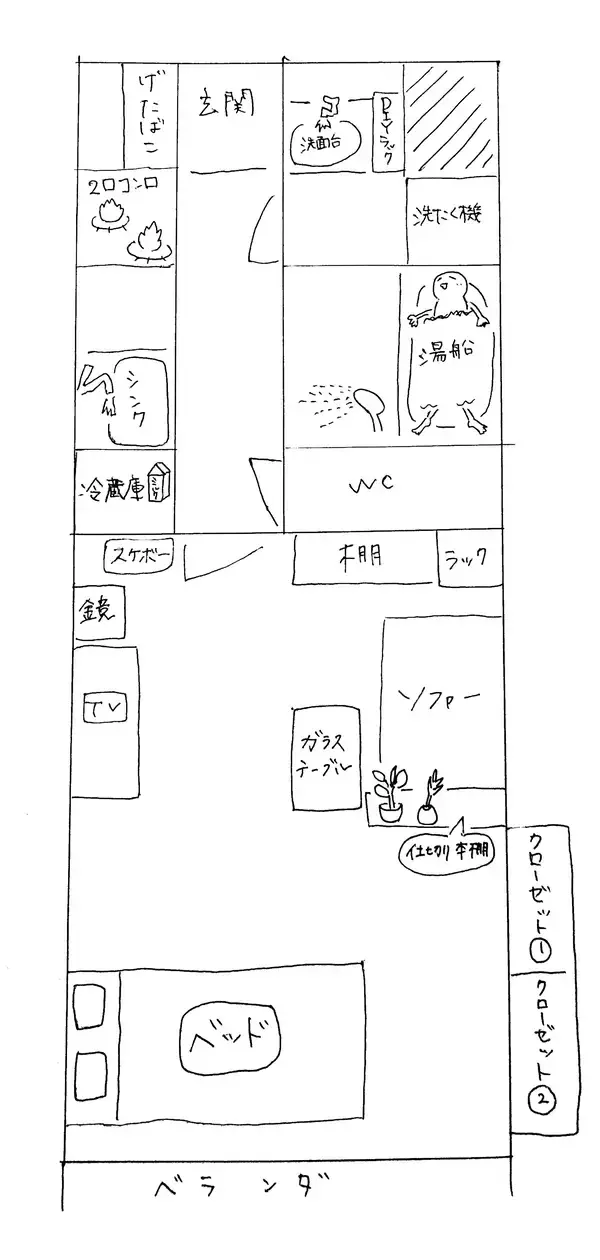 げたばこ
玄関
洗面台
DIYラック
2口コンロ
洗たく機
湯船
シンク
冷蔵庫
ミルク
WC
スケボー
棚
ラック
鏡
TV
ソファー
ガラス
テーブル
仕切り本棚
クローゼット①
クローゼット②
ベッド
ベランダ